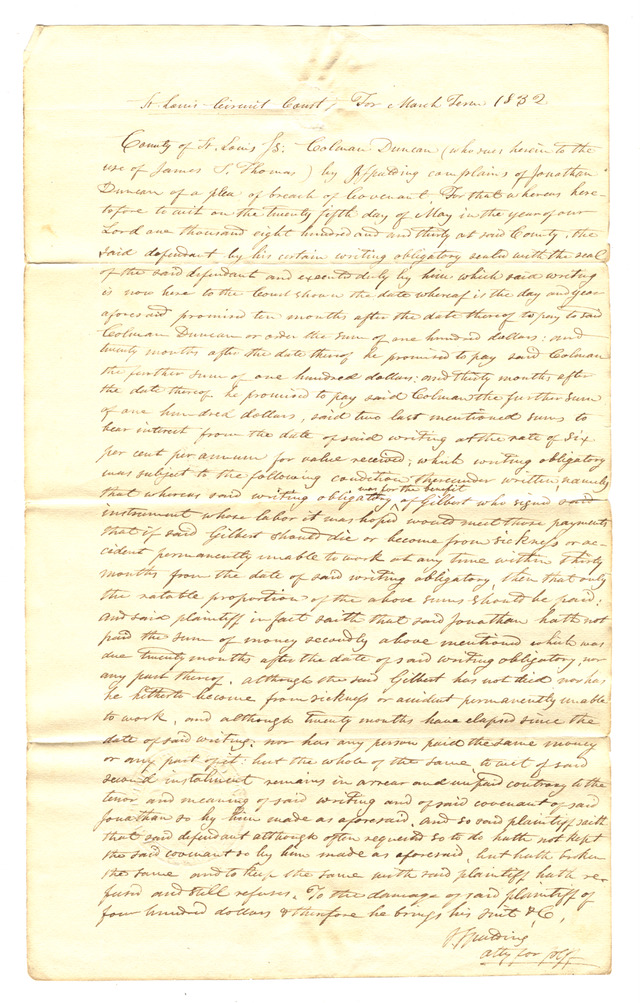 St Louis Circuit Court, For March Term 1832
County of St. Louis Ss: Colman Duncan (who sues herein to the
use of James S. Thomas) by J Spalding complains of Jonathan
Duncan of a plea of breach of Covenant. For that whereas here-
tofore to wit on the twenty fifth day of May in the year of our
Lord one thousand eight hundred and and thirty at said County, the
said defendant by his certain writing obligatory sealed with the seal
of the said defendant and executed duly by him which said writing
is now here to the Court shown the date whereof is the day and year
aforesaid promised ten months after the date thereof to pay to said
Colman Duncan or order the sum of one hundred dollars: and
twenty months after the date thereof he promised to pay said Colman
the further sum of one hundred dollars: and thirty months after
the date thereof he promised to pay said Colman the further sum
of one hundred dollars, said two last mentioned sums to
bear interest from the date of said writing at the rate of six
per cent per annum for value received; which writing obligatory
was subject to the following condition thereunder written, namely
that whereas said writing obligatory was for the benefit of Gilbert who signed said
instrument whose labor it was hoped would meet those payments
that if said Gilbert should die or become from sickness or ac-
cident permanently unable to work at any time within thirty
months from the date of said writing obligatory, then that only
the ratable proportion of the above sums should be paid:
and said plaintiff in fact saith that said Jonathan hath not
paid the sum of money secondly above mentioned which was
due twenty months after the date of said writing obligatory, nor
any part thereof, although the said Gilbert has not died nor has
he hitherto become from sickness or accident permanently unable
to work, and although twenty months have elapsed since the
date of said writing: nor has any person paid the same money
or any part of it: but the whole of the same to wit of said
second instalment remains in arrear and unpaid contrary to the
tenor and meaning of said writing and of said covenant of said
Jonathan so by him made as aforesaid. And so said plaintiff saith
that said defendant although often requested so to do hath not kept
the said covenant so by him made as aforesaid, but hath broken
the same and to keep the same with said plaintiff hath re-
fused and still refuses. To the damage of said plaintiff of
four hundred dollars & therefore he brings his suit &C,
J Spalding
atty for plff